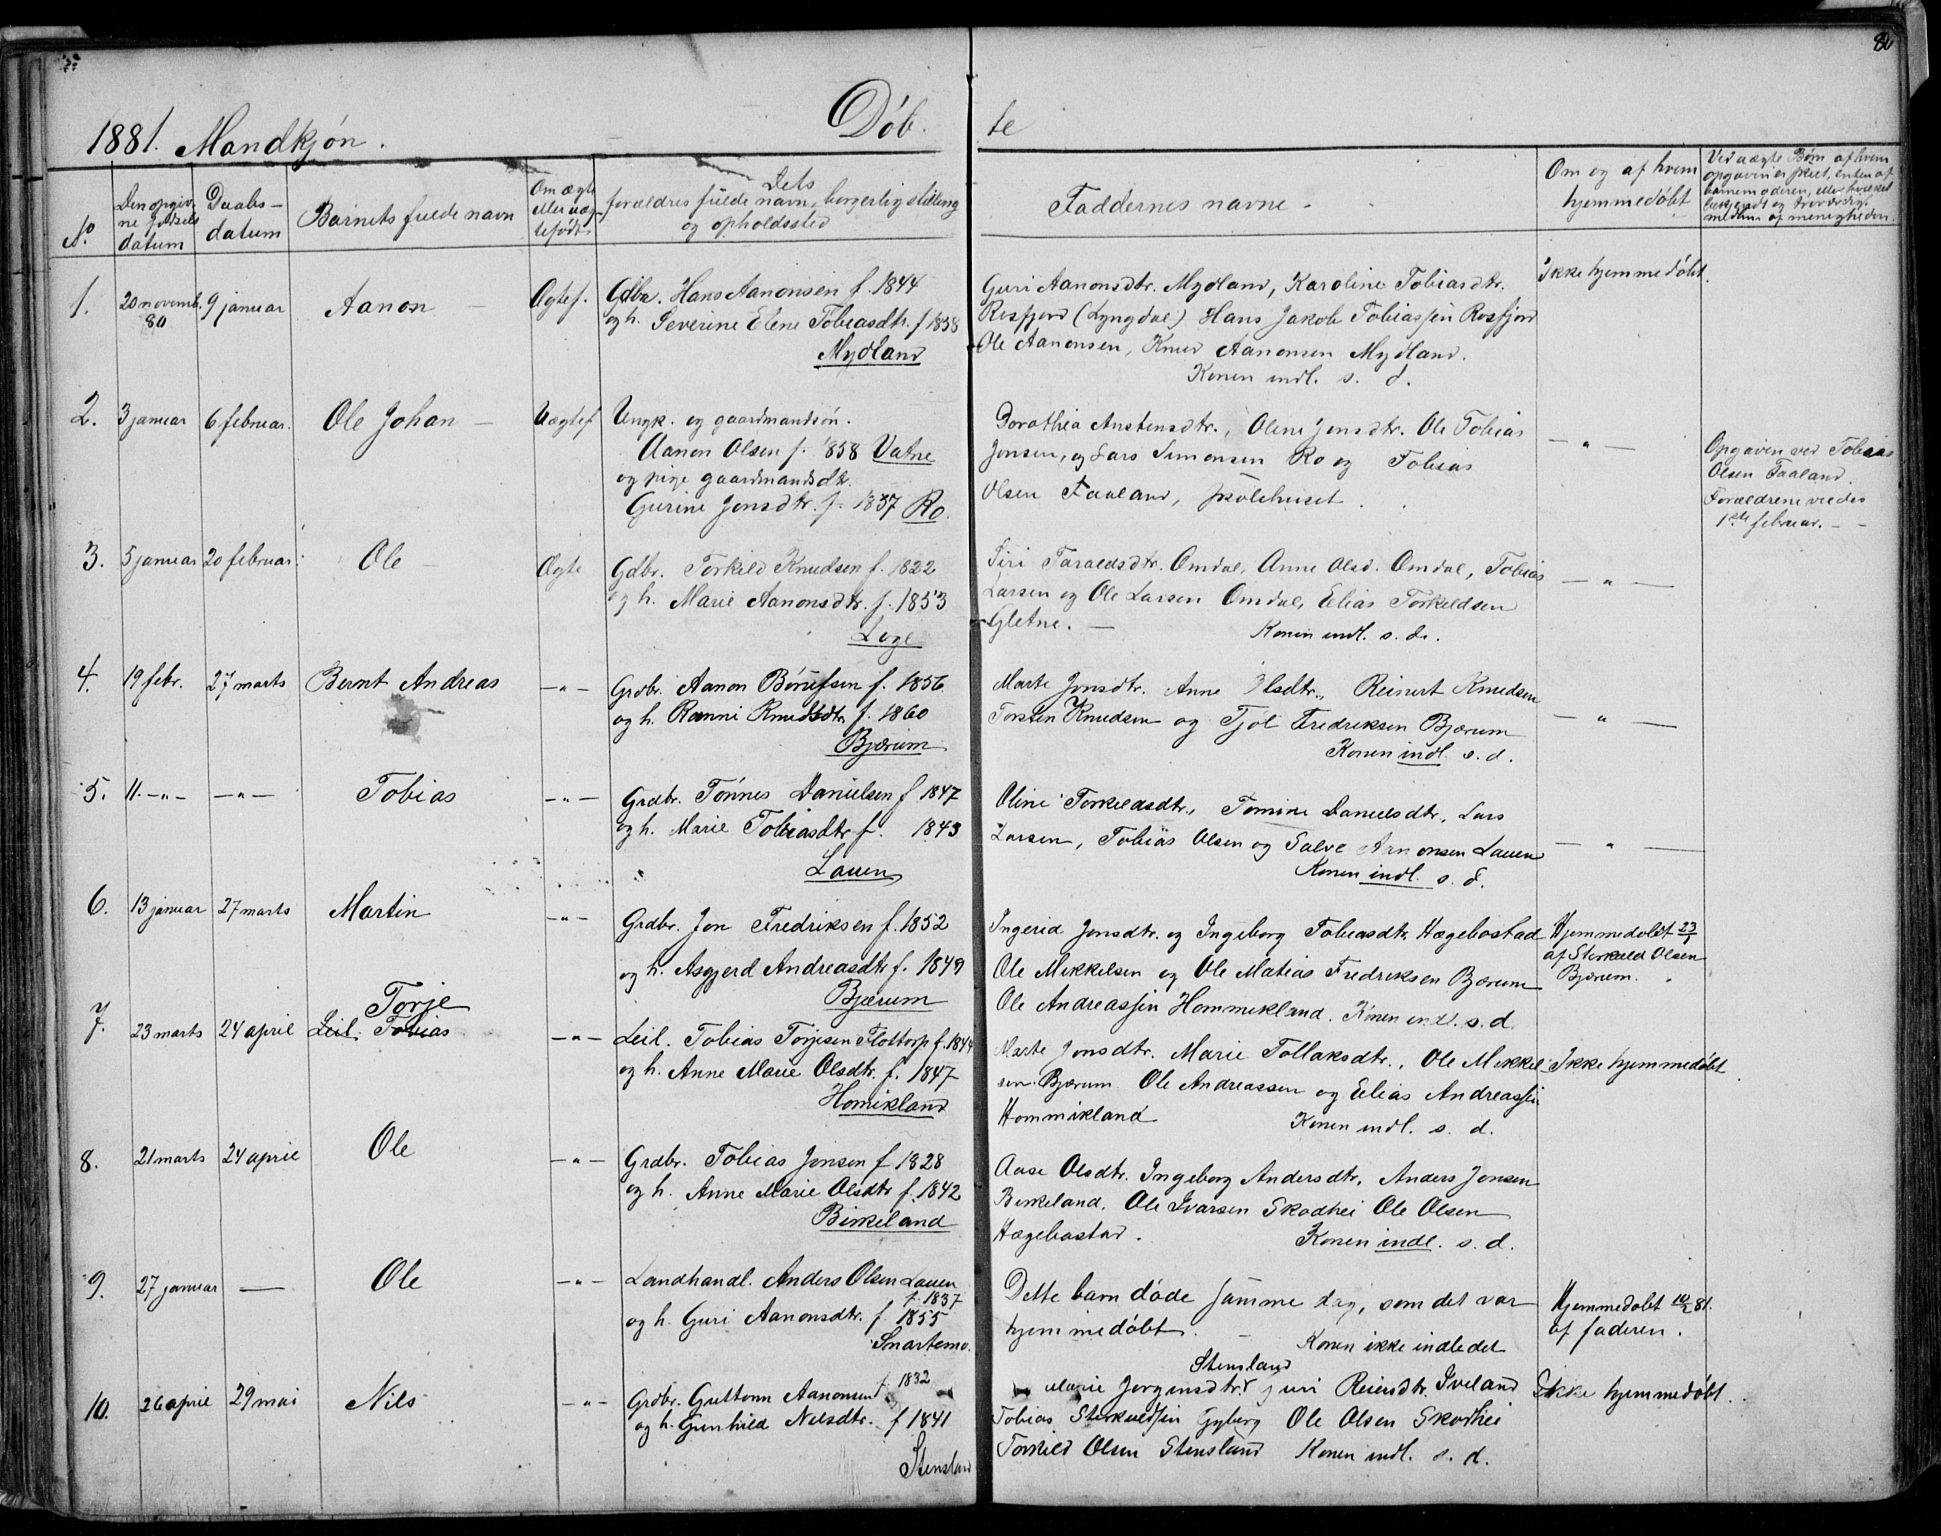 80
1881. Mandkjøn. Døb. te
No.
Den opgiv-
ne fødsels
datum
Daabs-
datum
Barnets fulde navn
Om ægte
eller uæg-
tefødt
Dets
forældres fulde navn, borgerlig stilling
og opholdssted
Faddernes navne.
Om og af hvem
hjemmedøbt
Ved uægte Børn af hvem
opgaven er skeet, enten af
barnemoderen, eller hvilket
bekjendt og troværdigt
medlem af menigheden.
1. 20 novemb. 80 9 januar Aanon Ægtef.
Gdbr. Hans Aanonsen f. 1844
og h. Severine Elene Tobiasdtr. f 1858
Mydland
Guri Aanonsdtr. Mydland, Karoline Tobiasdtr.
Rosfjord (Lyngdal) Hans Jakob Tobiassen Rosfjord
Ole Aanonsen, Knud Aanonsen Mydland.
Konen indl. s. d.
Ikke hjemmedøbt.
2. 3 januar 6 februar. Ole Johan Uægtef
Ungk. og gaardmandsøn.
Aanon Olsen f. 1858 Vatne
og pige gaardmandsdtr.
Gurine Jonsdtr. f. 1837 Ro.
Dorothea Anstensdtr., Oline Jonsdtr. Ole Tobias
Jonsen, og Lars Simonsen Ro og Tobias
Olsen Faaland, skolehuset.
— " —
Opgaven ved Tobias
Olsen Faaland.
Forældrene viedes
1ste februar. - -
3. 5 januar 20 februar. Ole Ægte
Gdbr. Torkild Knudsen f. 1822
og h. Marie Aanonsdtr. f. 1853
Loge
Siri Taraldsdtr. Omdal, Anne Olsd. Omdal, Tobias
Larsen og Ole Larsen Omdal, Elias Torkildsen
Gletne. — Konen indl. s. d.
— " —
4. 19 febr. 27 marts Bernt Andreas — " —
Grdbr. Aanon Børufsen f. 1856
og h. Ranni Knudsdtr f. 1860
Bjærum
Marte Jonsdtr. Anne Olsdtr., Reinert Knudsen
Torsten Knudsen og Tjøl Fredriksen Bjærum
Konen indl. s. d.
— " —
5. 11. - " - — " — Tobias — " —
Grdbr. Tønnes Danielsen f 1847
og h. Marie Tobiasdtr f. 1843
Lauen
Oline Torkildsdtr., Tomine Danielsdtr, Lars
Larsen, Tobias Olsen og Salve Aanonsen Lauen
Konen indl. s. d.
— " —
6. 13 januar 27 marts Martin — " —
Grdbr. Jon Fredriksen f. 1852
og h. Asgjerd Andreasdtr f. 1849
Bjærum
Ingerid Jonsdtr. og Ingeborg Tobiasdtr. Hægebostad
Ole Mikkelsen og Ole Matias Fredriksen Bjærum
Ole Andreassen Hommekland. Konen indl. s. d.
Hjemmedøbt 23/1
af Storkuld Olsen
Bjærum.
7. 23 marts 24 april Torje
Leil. Tobias — " —
Leil. Tobias Torjesen Flottorp f. 1844
og h. Anne Marie Olsdtr. f. 1847
Homikland
Marte Jonsdtr. Marie Tollaksdtr., Ole Mikkel-
sen Bjærum Ole Andreassen og Elias Andreassen
Hommikland Konen indl. s. d.
Ikke hjemmedøbt
8. 21 marts 24 april Ole — " —
Grdbr. Tobias Jonsen f 1828
og h. Anne Marie Olsdtr f. 1842
Birkeland
Aase Olsdtr. Ingeborg Andersdtr, Anders Jonsen
Birkeland, Ole Ivarsen Skodhei Ole Olsen
Hægebostad. Konen indl. s. d.
9. 27 januar — Ole — " —
Landhandl. Anders Olsen Lauen
f. 1837
og h. Guri Aanonsdtr. f 1855
Snartemo.
Dette barn døde samme dag, som det var
hjemmedøbt. — Konen ikke indledet
Hjemmedøbt 10/2 81.
af faderen.
10. 26 april 29 mai Nils — " —
Grdbr. Guttorm Aanonsen f. 1832
og h. Gunhild Nilsdtr. f 1841
Stensland
Stensland
Marie Jorginsdtr. Guri Reiersdtr. Iveland
Tobias Storkuldsen Gyberg Ole Olsen Skodhei
Torkild Olsen Stensland Konen indl. s. d.
Ikke hjemmedøbt.